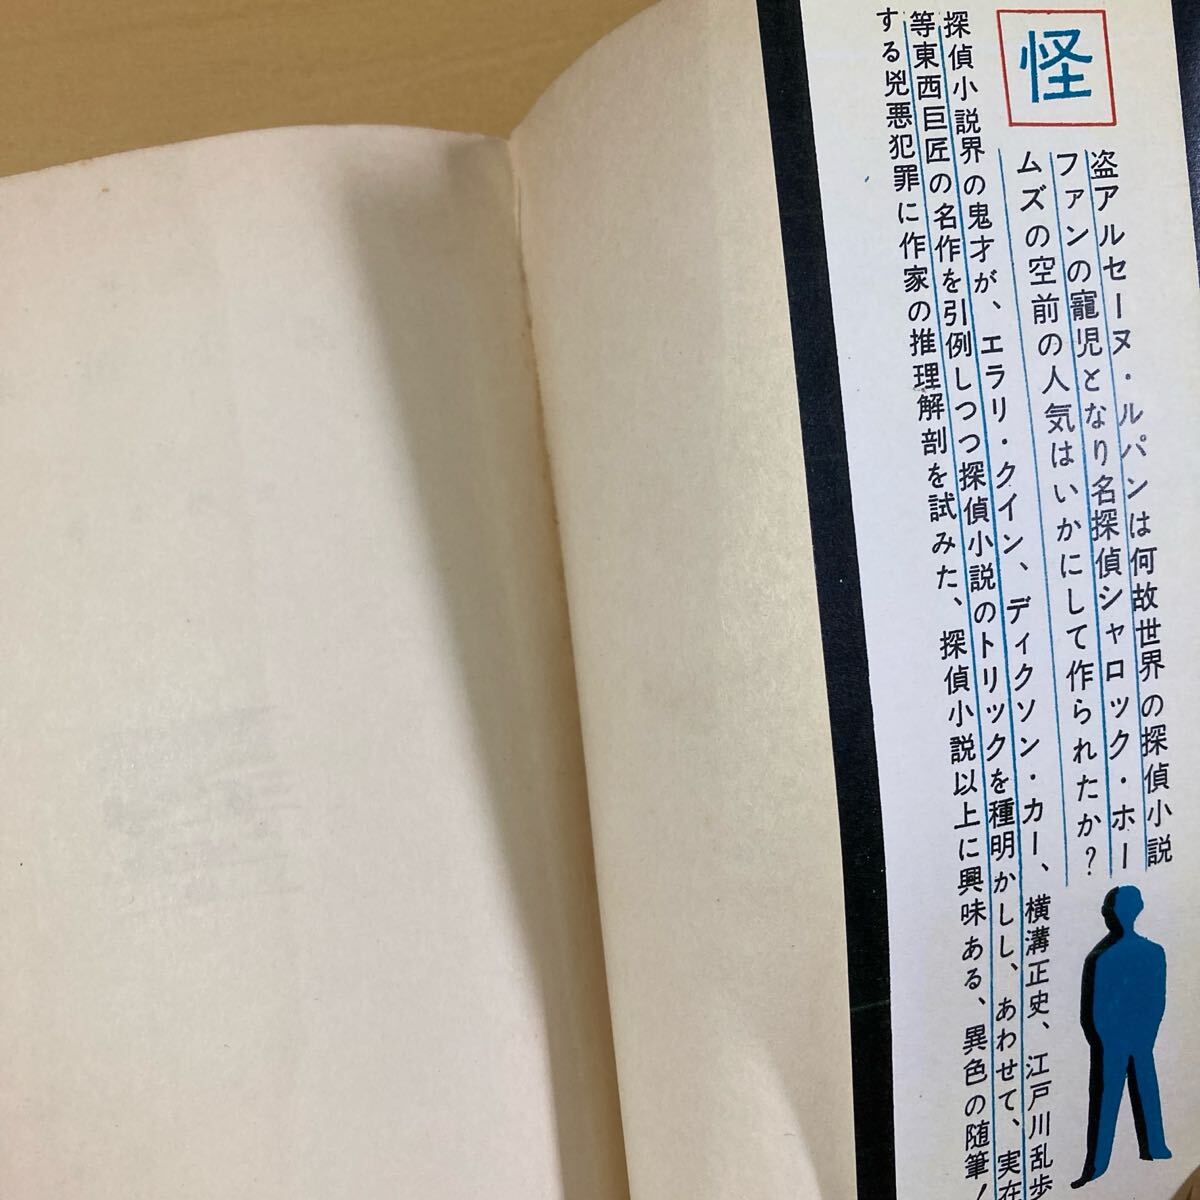 怪
盗アルセーヌ・ルパンは何故世界の探偵小説
ファンの寵児となり名探偵シャロック・ホー
ムズの空前の人気はいかにして作られたか？
探偵小説界の鬼才が、エラリ・クイン、ディクソン・カー、横溝正史、江戸川乱歩
等東西巨匠の名作を引例しつつ探偵小説のトリックを種明かしし、あわせて、実在
する兇悪犯罪に作家の推理解剖を試みた、探偵小説以上に興味ある、異色の随筆！